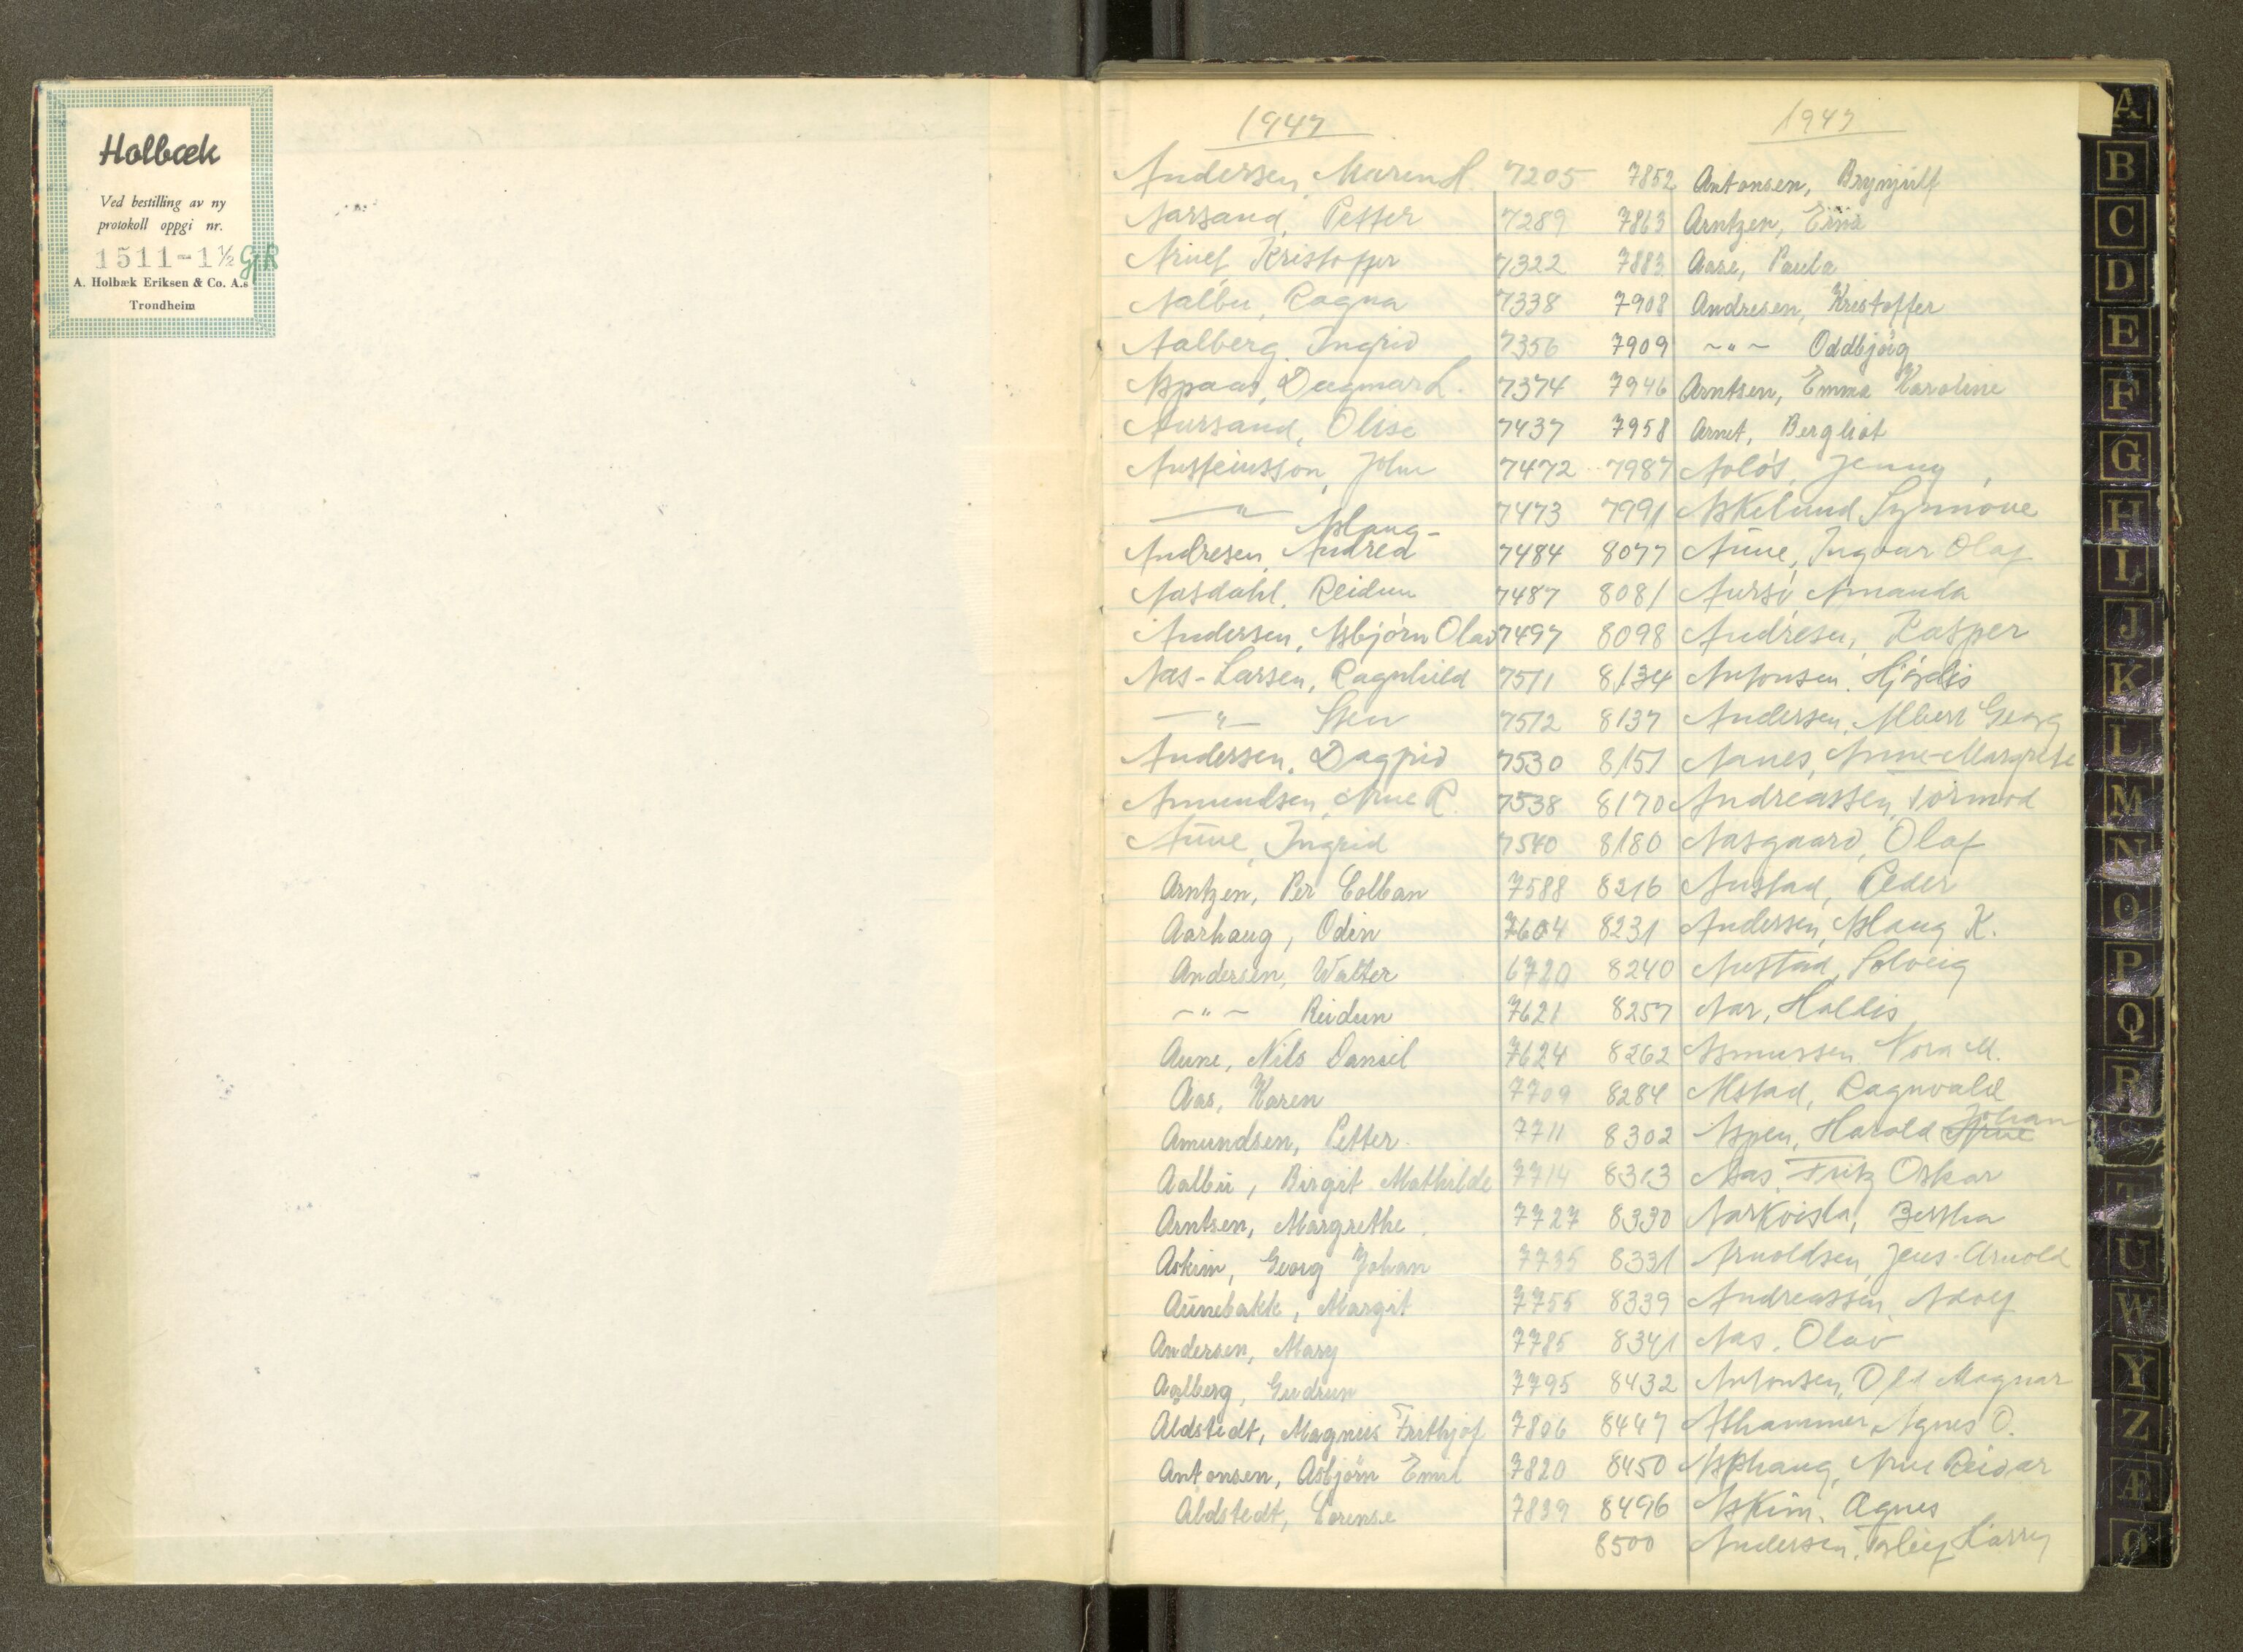 Holbæk
Ved bestilling av ny
protokoll oppgi nr.
1511-1½ GjR
A. Holbæk Eriksen & Co. A.s
Trondheim
1947
Andersen, Maren H. 7205
Aarsand, Petter 7289
Kristoffer 7322
Aalbu, Ragna 7338
Aalberg, Ingrid 7356
Aspaas, Dagmar L. 7374
Aursand, Olise 7437
Austeinsson, John 7472
—"— Aslaug- 7473
Andresen, Andrea 7484
Aasdahl, Reidun 7487
Andersen, Asbjörn Olav 7497
Aas-Larsen, Ragnhild 7511
—"— Sten 7512
Andersen, Dagfrid 7530
Amundsen, Arne R. 7538
Aune, Ingrid 7540
Arntzen, Per Colban 7588
Aarhaug, Odin 7604
Andersen, Walter 6720
~"~ Reidun 7621
Aune, Nils Daniel 7624
Aas, Karen 7709
Amundsen, Petter 7711
Aalbu, Birgit Mathilde 7714
Arntsen, Margrethe 7727
Askim, Georg Johan 7735
Aunebakk, Margit 7755
Andersen, Mary 7785
Aalberg, Gudrun 7795
Aldstedt, Magnus Frithjof 7806
Antonsen, Asbjörn Emil 7820
Aldstedt, Lorense 7839
1947
7852 Antonsen, Brynjulf
7863 Arntzen, Erna
7883 Aase, Paula
7908 Andresen, Kristoffer
7909 ~"~ Oddbjörg
7946 Arntsen, Emma Karoline
7958 Arnet, Bergliot
7987 Jenny
7991 Askelund, Synnöve
8077 Aune, Ingvar Olaf
8081 Amanda
8098 Andresen, Kasper
8134 Antonsen, Hjördis
8137 Andersen, Albert Georg
8151 Aanes, Anne-Margrete
8170 Andreassen, Tormod
8180 Aasgaard, Olaf
8216 Austad, Peder
8231 Andersen, Aslaug K.
8240 Austad, Solveig
8257 Aar, Halldis
8262 Asmussen, Nora M.
8284 Alstad, Ragnvald
8302 Aspen, Harald Arne Johan
8313 Aas, Fritz Oskar
8330 Aarkvisla, Bertha
8331 Arnoldsen, Jens-Arnold
8339 Andreassen, Adolf
8341 Aas, Olav
8432 Antonsen, Magnar
8447 Alhammer, Agnes O.
8450 Asphaug, Arne Reidar
8496 Askim, Agnes
8500 Andersen, Harry
A
B
C
D
E
F
G
H
I
J
K
L
M
N
O
P
Q
R
S
T
U
W
Y
Z
Æ
Ø